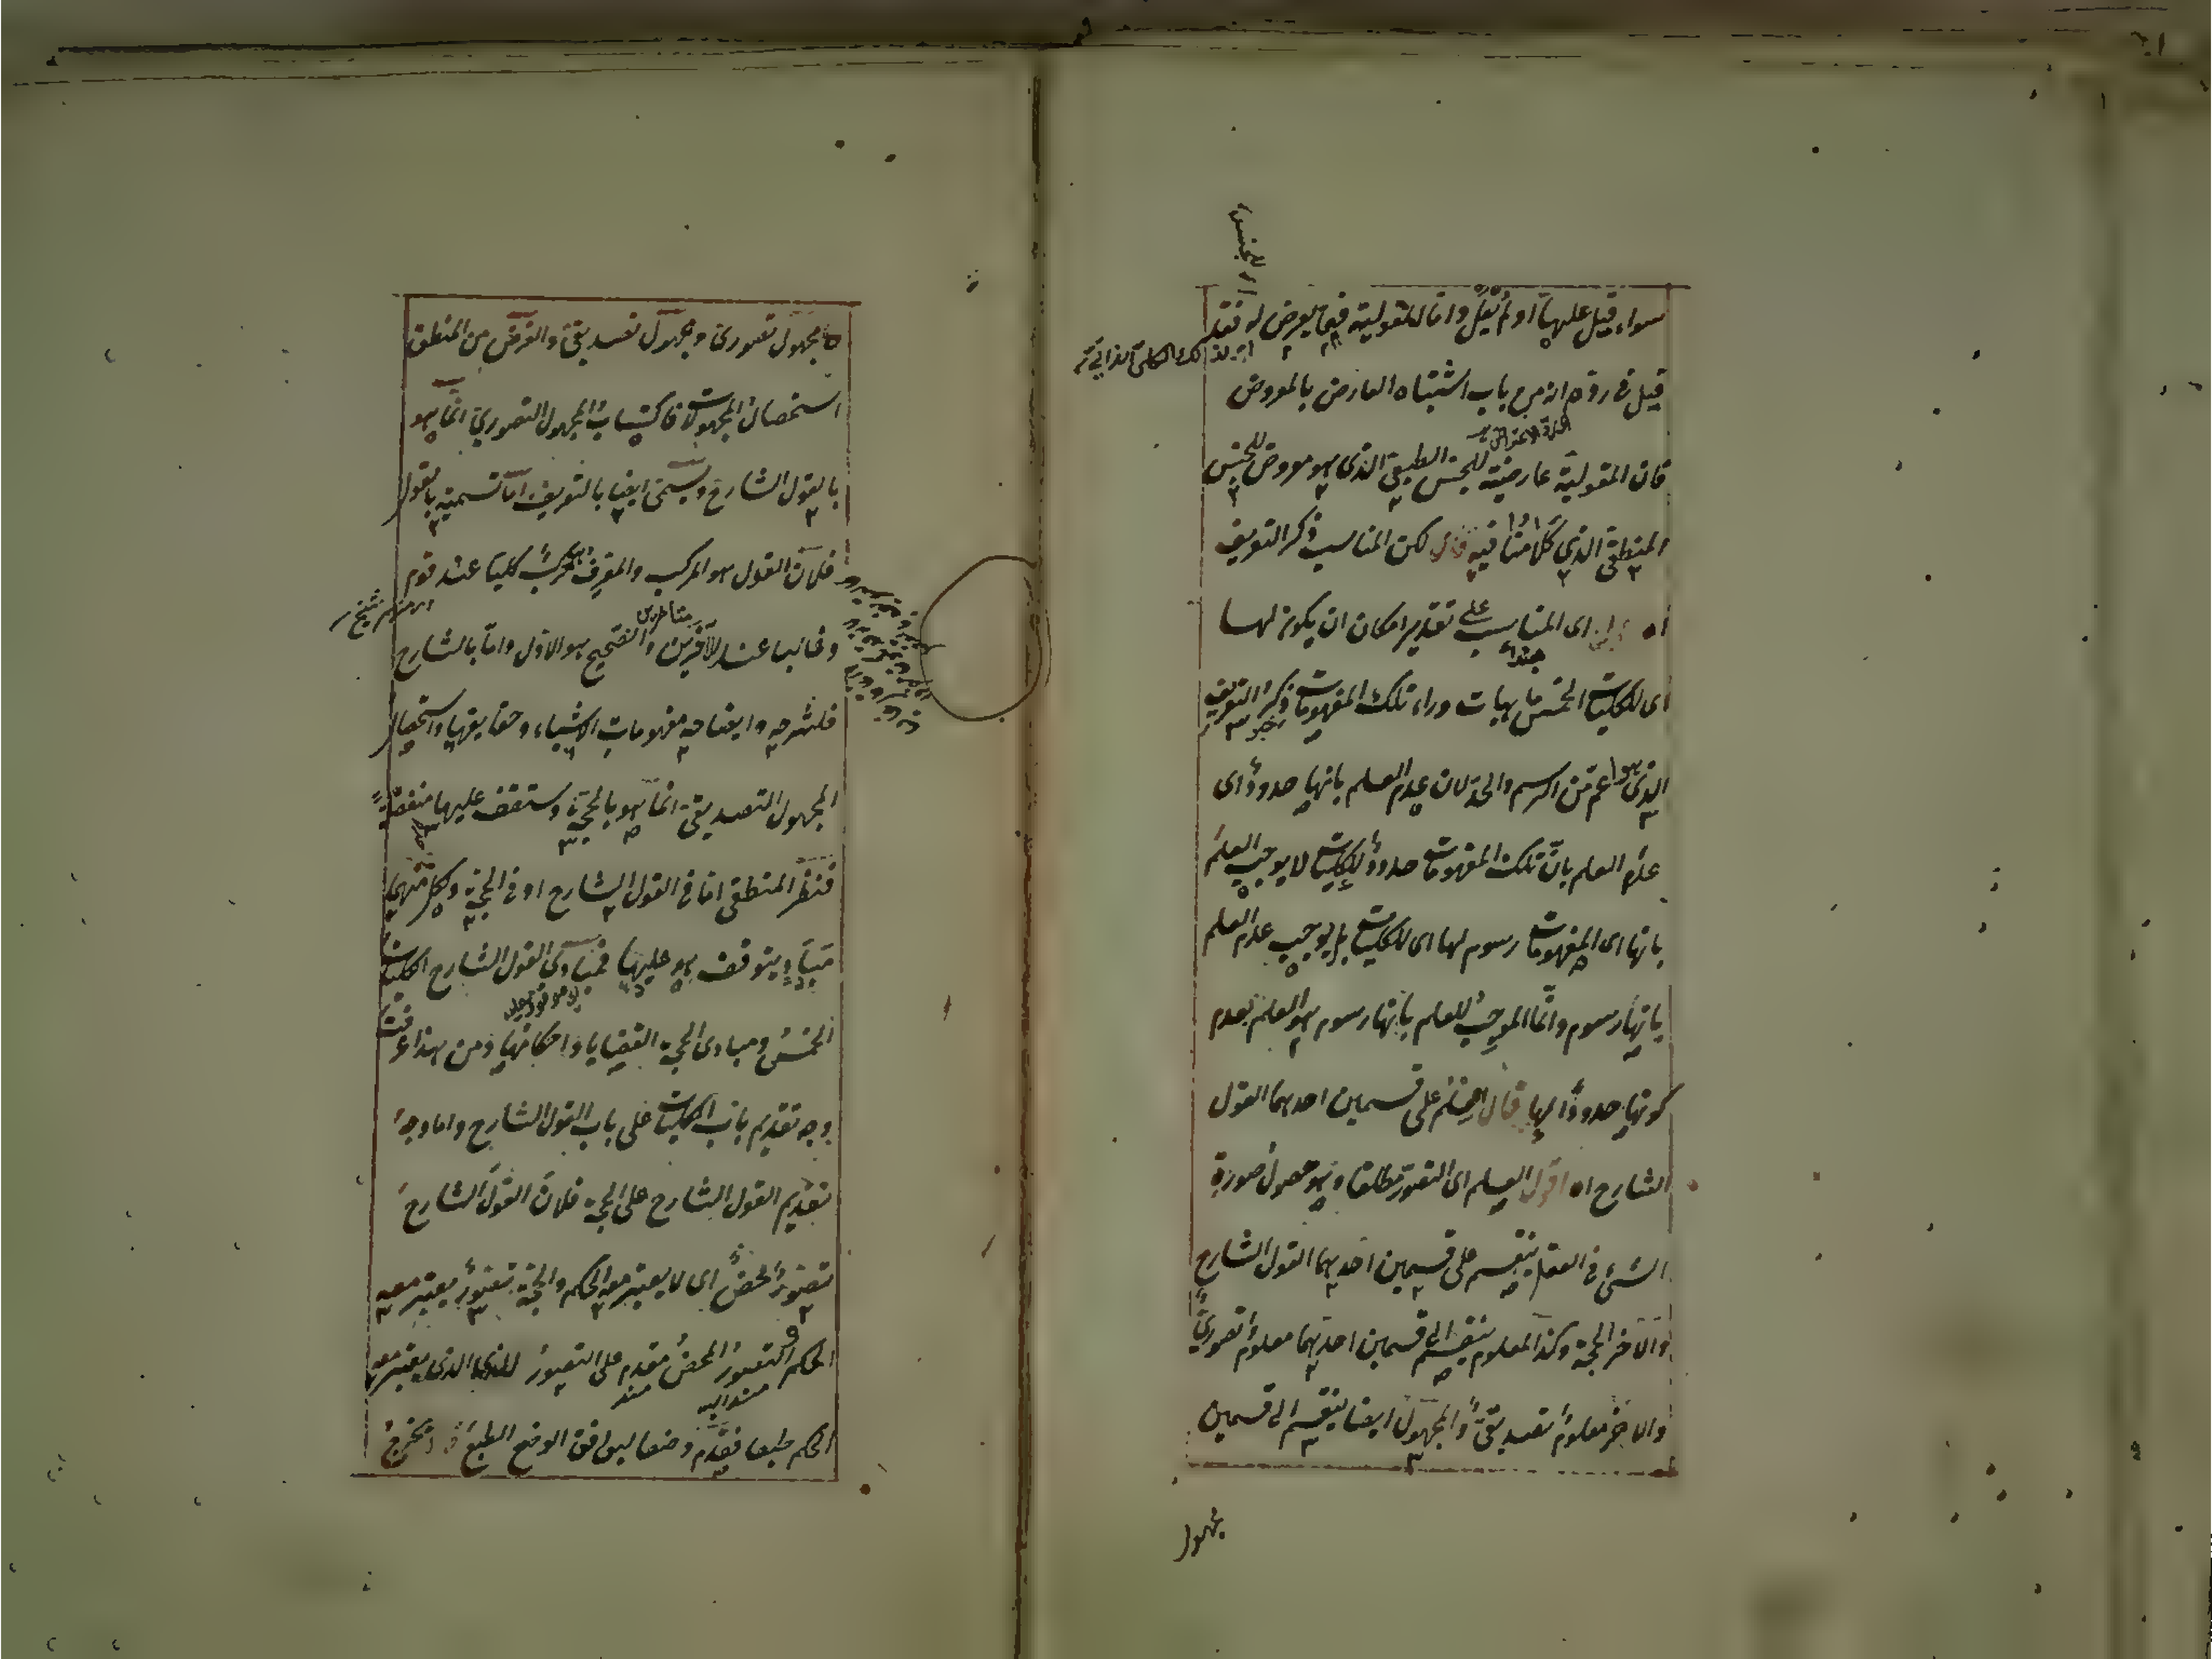 سواء قيل عليها او لم يقل وانما المقولية فيما يعرض له فقد
قيل في رده انه من باب اشتباه العارض بالمعروض
فان المقولية عارضة للجنس الطبيعي الذي هو معروض للجنس
المنطقي الذي كلامنا فيه قال لكن المناسب ذكر التعريف
اه اي المناسب على تقدير امكان ان يكون لها
اي للكليات الخمس ماهيات وراء تلك المفهومات ذكر التعريف
الذي هو اعم من الرسم والحد لان عدم العلم بانها حدود اي
عدم العلم بان تلك المفهومات حدود للكليات لا يوجب العلم
بانها اي المفهومات رسوم لها اي للكليات بل يوجب عدم العلم
بانها رسوم وانما الموجب للعلم بانها رسوم هو العلم بعدم
كونها حدودا لها قال العلم على قسمين احدهما القول
الشارح اه اقول العلم اي التصور مطلقا وهو حصول صورة
الشيء في العقل ينقسم على قسمين احديهما القول الشارح
والاخر الحجة وكذا المعلوم ينقسم الى قسمين احديهما معلوم تصوري
والاخر معلوم تصديقي والمجهول ايضا ينقسم الى قسمين
مجهول
مجهول تصوري ومجهول تصديقي والغرض من المنطق
استحصال المجهولات فاكتساب المجهول التصوري انما هو
بالقول الشارح ويسمى ايضا بالتعريف اما تسمية بالقول
فلان القول هو المركب والمعرف مركب كليا عند قوم
وغالبا عند الآخرين والصحيح هو الاول واما بالشارح
فلشرحه وايضاحه مفهومات الاشياء وحقايقها واستحصال
المجهول التصديقي انما هو بالحجة وستقف عليها منفصلة
فنظر المنطقي اما في القول الشارح او في الحجة ولكل منهما
مباد يتوقف هو عليها فمبادي القول الشارح الكليات
الخمس ومبادي الحجة القضايا واحكامها ومن هذا عرفت
وجه تقديم باب الكليات على باب القول الشارح واما وجه
تقديم القول الشارح على الحجة فلان القول الشارح
تصور محض اي لا يعتبر معه الحكم والحجة تصور يعتبر معه
الحكم والتصور المحض مقدم على التصور الذي يعتبر معه
الحكم طبعا فقدم وضعا ليوافق الوضع الطبع